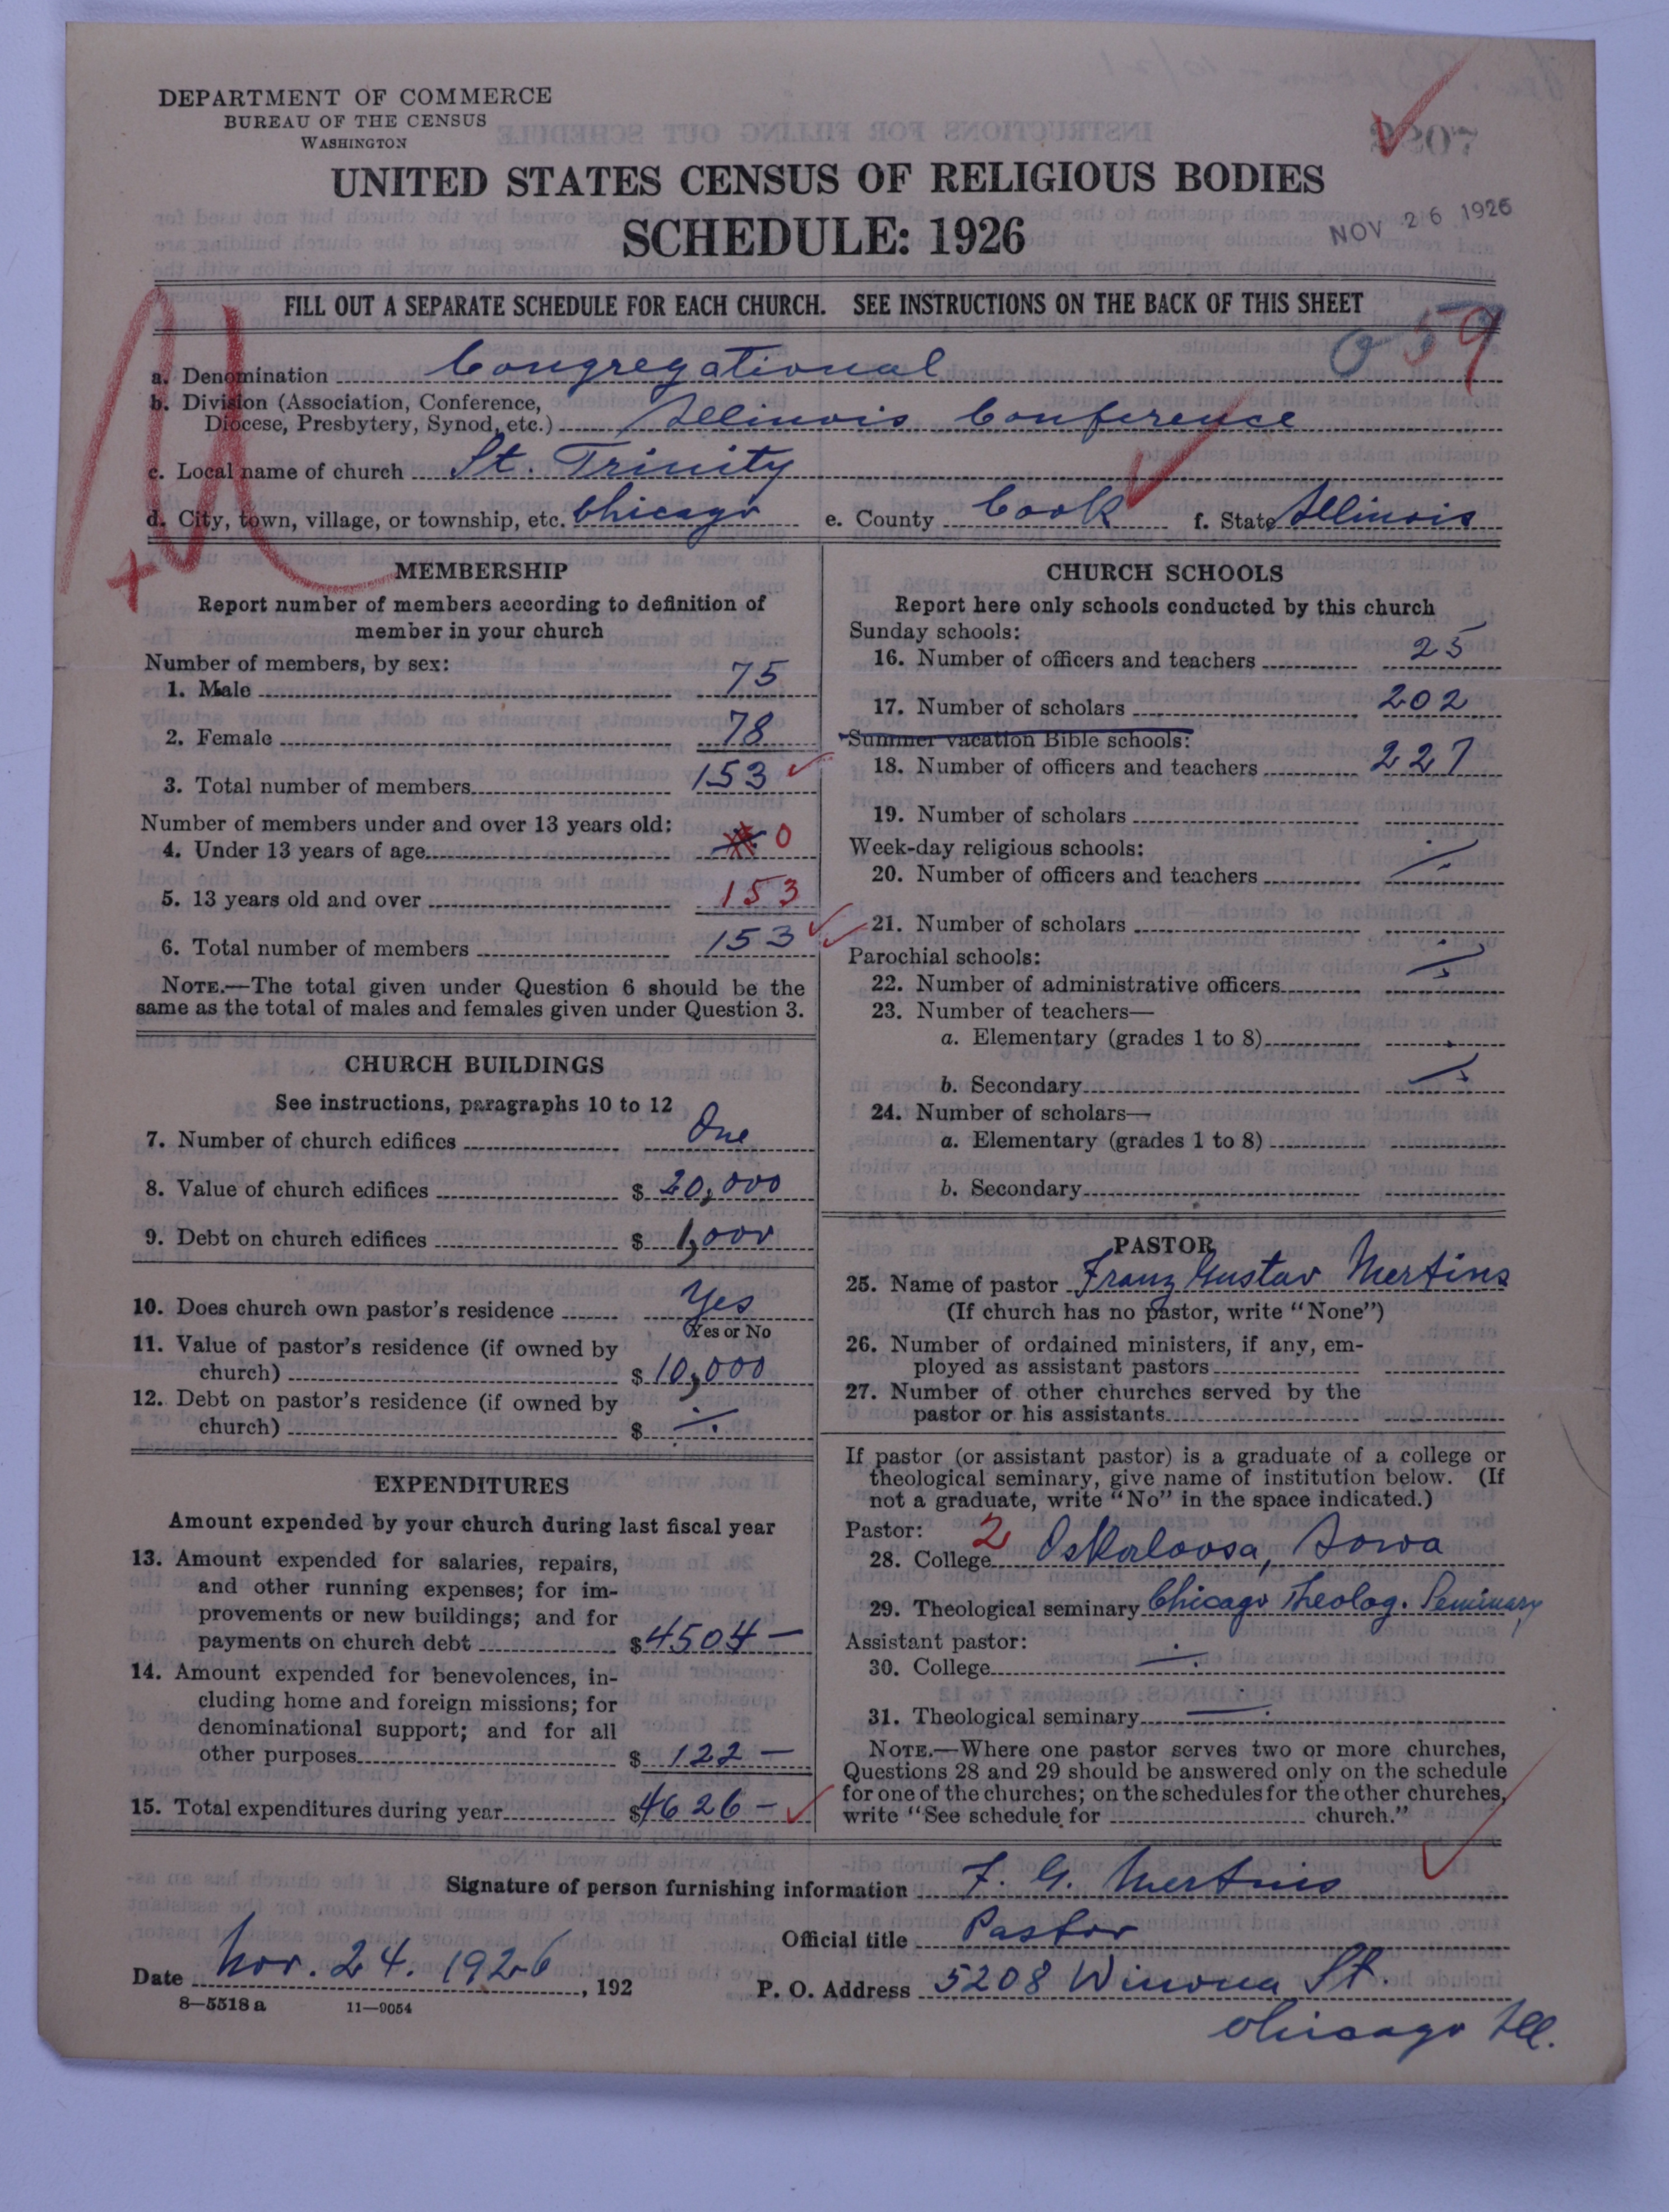 DEPARTMENT OF COMMERCE
BUREAU OF THE CENSUS
WASHINGTON
UNITED STATES CENSUS OF RELIGIOUS BODIES
SCHEDULE: 1926
NOV 26 1926
FILL OUT A SEPARATE SCHEDULE FOR EACH CHURCH. SEE INSTRUCTIONS ON THE BACK OF THIS SHEET
59
a. Denomination Congregational
b. Division (Association, Conference,
Diocese, Presbytery, Synod, etc.) Illinois Conference
c. Local name of church St. Trinity
d. City, town, village, or township, etc. Chicago e. County Cook f. State Illinois
MEMBERSHIP
Report number of members according to definition of
member in your church
Number of members, by sex:
1. Male 75
2. Female 78
3. Total number of members 153
Number of members under and over 13 years old:
4. Under 13 years of age 0
5. 13 years old and over 153
6. Total number of members 153
NOTE.—The total given under Question 6 should be the
same as the total of males and females given under Question 3.
CHURCH BUILDINGS
See instructions, paragraphs 10 to 12
7. Number of church edifices One
8. Value of church edifices $ 20,000
9. Debt on church edifices $ 1,000
10. Does church own pastor's residence Yes
Yes or No
11. Value of pastor's residence (if owned by
church) $ 10,000
12. Debt on pastor's residence (if owned by
church) $
EXPENDITURES
Amount expended by your church during last fiscal year
13. Amount expended for salaries, repairs,
and other running expenses; for im-
provements or new buildings; and for
payments on church debt $ 4504 —
14. Amount expended for benevolences, in-
cluding home and foreign missions; for
denominational support; and for all
other purposes $ 122 —
15. Total expenditures during year $ 4626 —
CHURCH SCHOOLS
Report here only schools conducted by this church
Sunday schools:
16. Number of officers and teachers 25
17. Number of scholars 202
Summer vacation Bible schools:
18. Number of officers and teachers 227
19. Number of scholars
Week-day religious schools:
20. Number of officers and teachers
21. Number of scholars
Parochial schools:
22. Number of administrative officers
23. Number of teachers—
a. Elementary (grades 1 to 8)
b. Secondary
24. Number of scholars—
a. Elementary (grades 1 to 8)
b. Secondary
PASTOR
25. Name of pastor Franz Gustav Mertins
(If church has no pastor, write "None")
26. Number of ordained ministers, if any, em-
ployed as assistant pastors
27. Number of other churches served by the
pastor or his assistants
If pastor (or assistant pastor) is a graduate of a college or
theological seminary, give name of institution below. (If
not a graduate, write "No" in the space indicated.)
Pastor: 2
28. College Oskaloosa, Iowa
29. Theological seminary Chicago Theolog. Seminary
Assistant pastor:
30. College
31. Theological seminary
NOTE.—Where one pastor serves two or more churches,
Questions 28 and 29 should be answered only on the schedule
for one of the churches; on the schedules for the other churches,
write "See schedule for church."
Signature of person furnishing information F. G. Mertins
Official title Pastor
Date Nov. 24. 1926, 192
P. O. Address 5208 Winona St.
Chicago Ill.
8—5518 a 11—9054